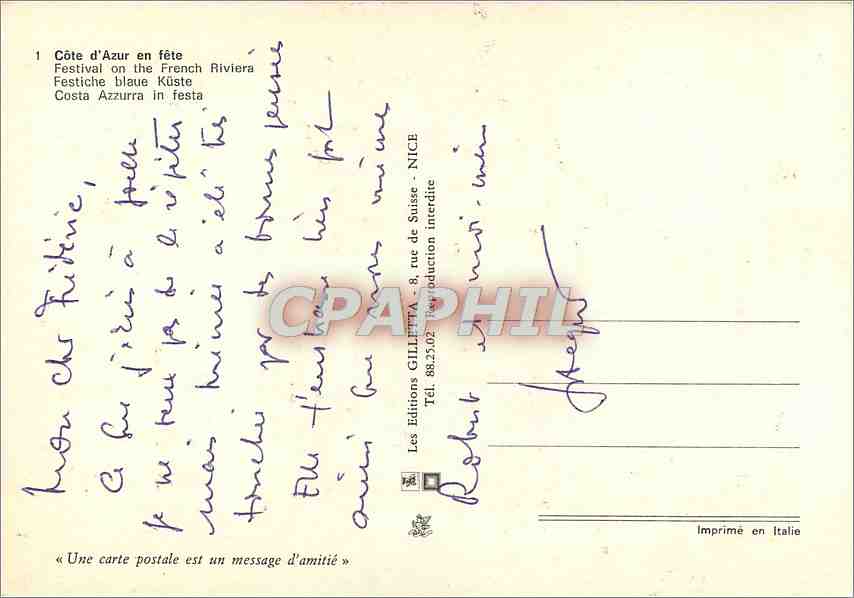 1 Côte d'Azur en fête
Festival on the French Riviera
Festiche blaue Küste
Costa Azzurra in festa
Mon cher Frédéric,
Ce que j'écris à Joëlle
je ne veux pas te le répéter
mais mimi a été très
touchée par tes bonnes pensées
Elle t'embrasse très fort
ainsi que nous mêmes
Robert et moi-même
Les Editions GILLETTA - 8, rue de Suisse - NICE
Tél. 88.25.02 Reproduction interdite
CPAPHIL
Imprimé en Italie
« Une carte postale est un message d'amitié »